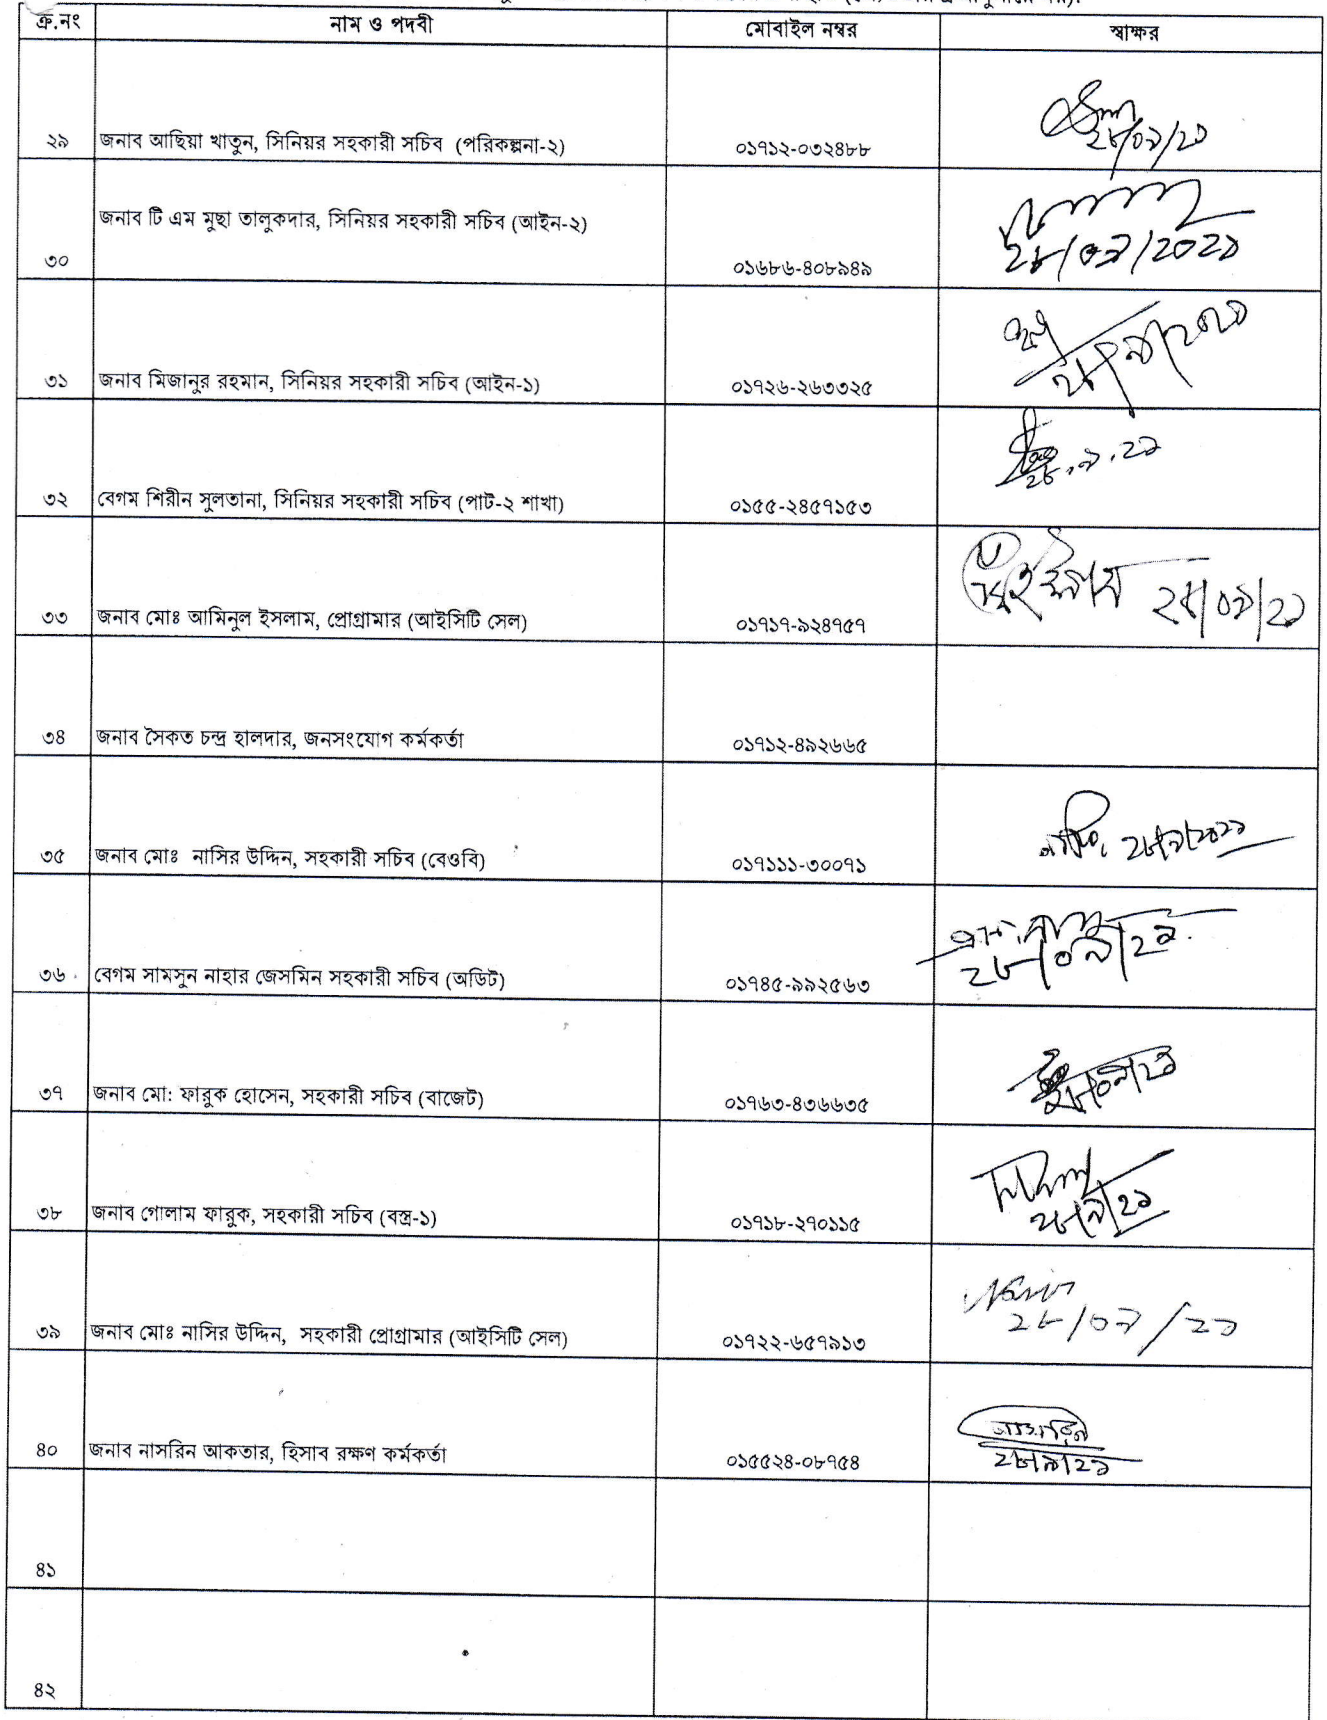 ক্র.নং নাম ও পদবী মোবাইল নম্বর স্বাক্ষর
২৯ জনাব আছিয়া খাতুন, সিনিয়র সহকারী সচিব (পরিকল্পনা-২) ০১৭১২-০৩২৪৮৮
২৮/০৯/২১
জনাব টি এম মুছা তালুকদার, সিনিয়র সহকারী সচিব (আইন-২)
৩০ ০১৬৮৬-৪০৮৯৪৯ ২৮/০৯/২০২১
৩১ জনাব মিজানুর রহমান, সিনিয়র সহকারী সচিব (আইন-১) ০১৭২৬-২৬৩৩২৫
২৮/০৯/২০২১
৩২ বেগম শিরীন সুলতানা, সিনিয়র সহকারী সচিব (পাট-২ শাখা) ০১৫৫-২৪৫৭১৫৩
২৮.৯.২১
৩৩ জনাব মোঃ আমিনুল ইসলাম, প্রোগ্রামার (আইসিটি সেল) ০১৭১৭-৯২৪৭৫৭ ২৮/০৯/২১
৩৪ জনাব সৈকত চন্দ্র হালদার, জনসংযোগ কর্মকর্তা ০১৭১২-৪৯২৬৬৫
৩৫ জনাব মোঃ নাসির উদ্দিন, সহকারী সচিব (বেওবি) ০১৭১১১-৩০০৭১ ২৮/৯/২০২১
৩৬ বেগম সামসুন নাহার জেসমিন সহকারী সচিব (অডিট) ০১৭৪৫-৯৯২৫৬৩
২৮/০৯/২১
৩৭ জনাব মো: ফারুক হোসেন, সহকারী সচিব (বাজেট) ০১৭৬৩-৪৩৬৬৩৫
৩৮ জনাব গোলাম ফারুক, সহকারী সচিব (বস্ত্র-১) ০১৭১৮-২৭০১১৫
২৮/৯/২১
৩৯ জনাব মোঃ নাসির উদ্দিন, সহকারী প্রোগ্রামার (আইসিটি সেল) ০১৭২২-৬৫৭৯১৩
২৮/০৯/২১
৪০ জনাব নাসরিন আকতার, হিসাব রক্ষণ কর্মকর্তা ০১৫৫২৪-০৮৭৫৪
২৮/৯/২১
৪১
৪২